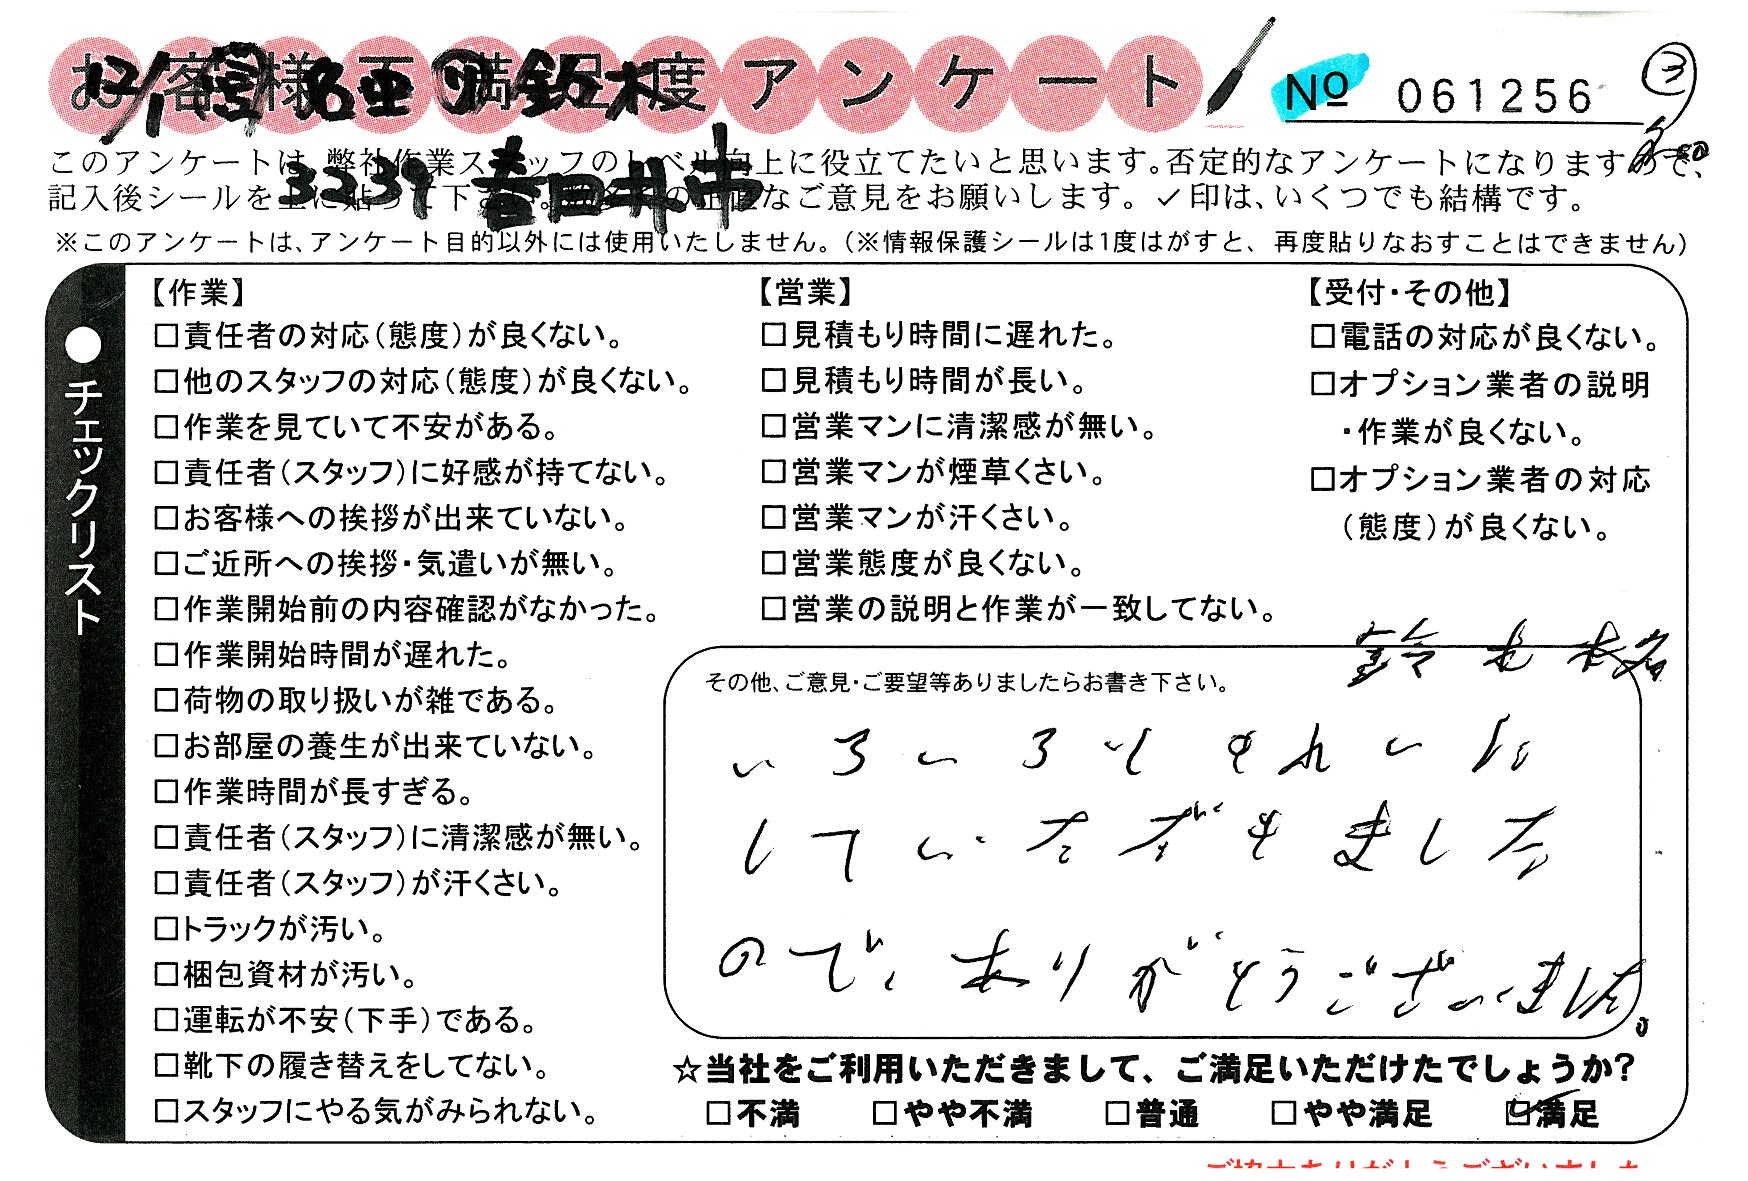 お客様不満足度アンケート
№ 061256
③
12/1 名亜 鈴木
3239 春日井市
このアンケートは、弊社作業スタッフのレベル向上に役立てたいと思います。否定的なアンケートになりますので、
記入後シールを上に貼って下さい。数多くの正直なご意見をお願いします。✓印は、いくつでも結構です。
※このアンケートは、アンケート目的以外には使用いたしません。(※情報保護シールは1度はがすと、再度貼りなおすことはできません)
●チェックリスト
【作業】
□責任者の対応(態度)が良くない。
□他のスタッフの対応(態度)が良くない。
□作業を見ていて不安がある。
□責任者(スタッフ)に好感が持てない。
□お客様への挨拶が出来ていない。
□ご近所への挨拶・気遣いが無い。
□作業開始前の内容確認がなかった。
□作業開始時間が遅れた。
□荷物の取り扱いが雑である。
□お部屋の養生が出来ていない。
□作業時間が長すぎる。
□責任者(スタッフ)に清潔感が無い。
□責任者(スタッフ)が汗くさい。
□トラックが汚い。
□梱包資材が汚い。
□運転が不安(下手)である。
□靴下の履き替えをしてない。
□スタッフにやる気がみられない。
【営業】
□見積もり時間に遅れた。
□見積もり時間が長い。
□営業マンに清潔感が無い。
□営業マンが煙草くさい。
□営業マンが汗くさい。
□営業態度が良くない。
□営業の説明と作業が一致してない。
【受付・その他】
□電話の対応が良くない。
□オプション業者の説明
・作業が良くない。
□オプション業者の対応
(態度)が良くない。
鈴木様
その他、ご意見・ご要望等ありましたらお書き下さい。
いろいろときれいに
していただきました
ので、ありがとうございました。
☆当社をご利用いただきまして、ご満足いただけたでしょうか?
□不満 □やや不満 □普通 □やや満足 ☑満足
ご協力ありがとうございました